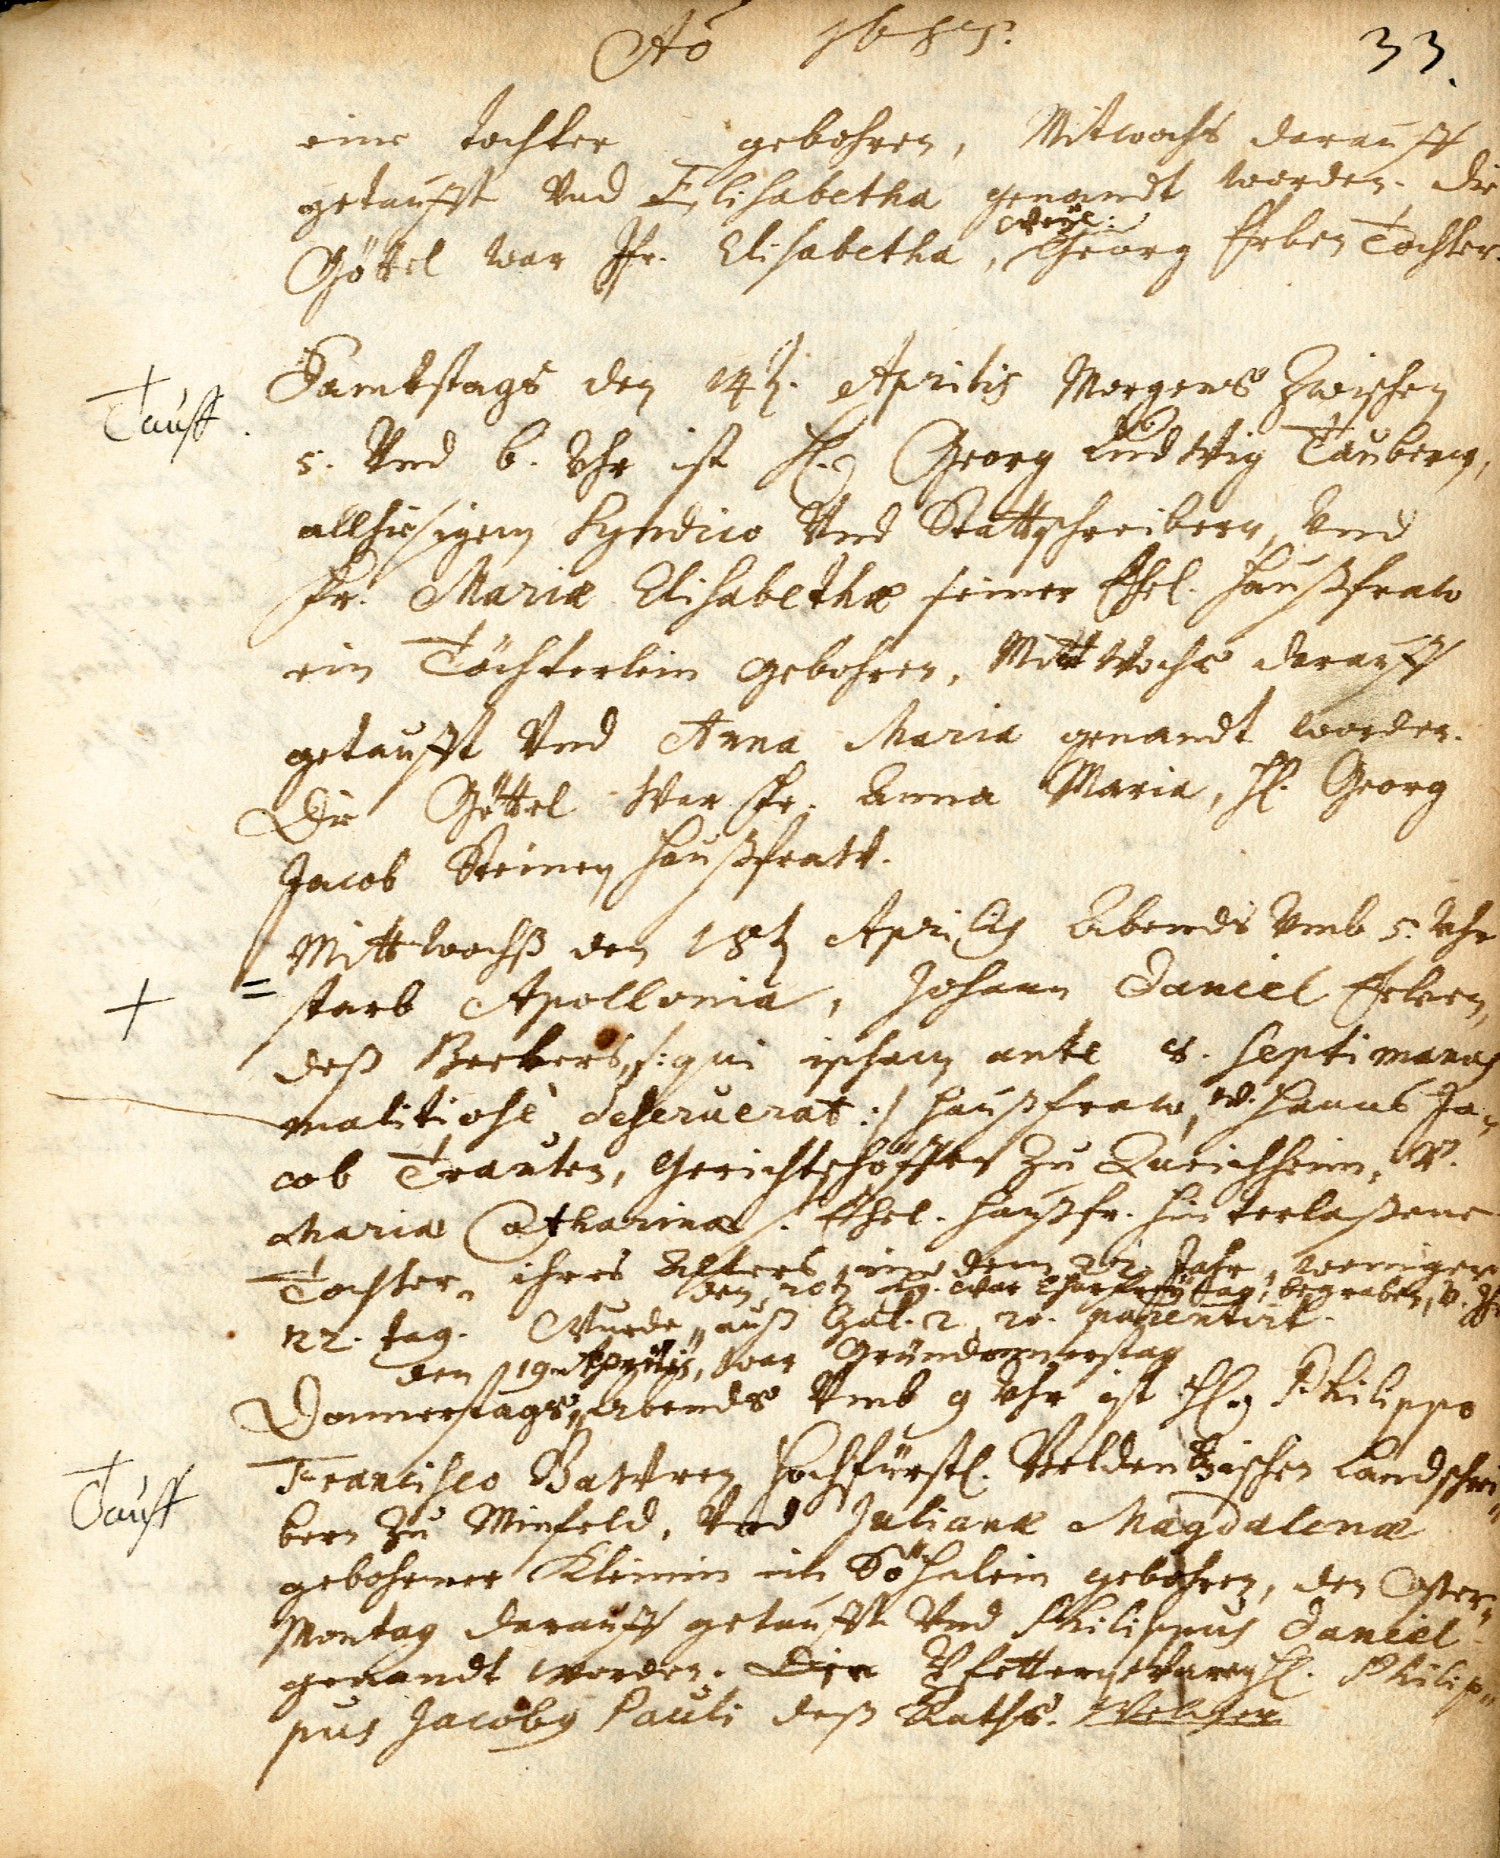 Aō 1685. 33.
eine tochter gebohren, Mitwochs darauff
getaufft Vnd Elisabetha genandt worden. die
weÿl:
Göttel war Jfr. Elisabetha, Georg Erben Tochter.
Tauff.
Sambstags den 14t. Aprilis Morgens Zwischen
5. Vnd 6. Vhr ist H. Georg Ludwig Taubern,
allhiesigem Syndico Vnd Stattschreibern, Vnd
Fr. Mariæ Elisabethæ seiner Ehel. Haußfraw
ein Töchterlein gebohren, Mittwochs darauff
getaufft Vnd Anna Maria genandt worden.
Die Göttel War Fr. Anna Maria, H. Georg
Jacob Steinen Haußfraw.
Mittwochß den 18t Aprilis Abends Vmb 5. Vhr
+ = starb Apollonia, Johann Daniel Erben,
deß Beckers, /:qui ipsam ante 8. septimanas
malitiosè deseruerat:/ Haußfraw, w. Hanns Ja-
cob Trauten, Gerichtschöffen Zu Queichheim, V.
Maria Catharina s. Ehel. Haußfr. hinterlaßene
Tochter, ihres Alters in dem 22. Jahr, weniger
den 20t war Charfreÿtag, begraben, V.
22. tag. Wurde auß Gal. 2. 20. parentirt.
den 19. Aprilis, war Gründonnerstag
Donnerstags, Abends Vmb 9 Vhr ist H. Philippo
Tauff
Francisco Bawren Hochfürstl. Veldentzischen Landschrei-
bern Zu Minfeld, Vnd Julianæ Magdalenæ
gebohrner Kleinin ein Söhnlein gebohren, den Oster-
Montag darauff getaufft Vnd Philippus Daniel
genandt worden. Die Pfettern waren H. Philip-
pus Jacobus Pauli deß Raths. Welcher